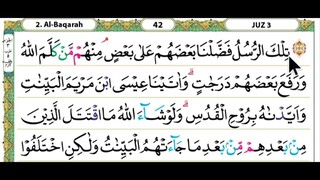 2. Al-Baqarah 42 JUZ 3
تِلْكَ الرُّسُلُ فَضَّلْنَا بَعْضَهُمْ عَلٰى بَعْضٍۘ مِنْهُمْ مَّنْ كَلَّمَ اللّٰهُ
وَرَفَعَ بَعْضَهُمْ دَرَجٰتٍۗ وَاٰتَيْنَا عِيْسَى ابْنَ مَرْيَمَ الْبَيِّنٰتِ
وَاَيَّدْنٰهُ بِرُوْحِ الْقُدُسِۗ وَلَوْ شَاۤءَ اللّٰهُ مَا اقْتَتَلَ الَّذِيْنَ
مِنْۢ بَعْدِهِمْ مِّنْۢ بَعْدِ مَا جَاۤءَتْهُمُ الْبَيِّنٰتُ وَلٰكِنِ اخْتَلَفُوْا